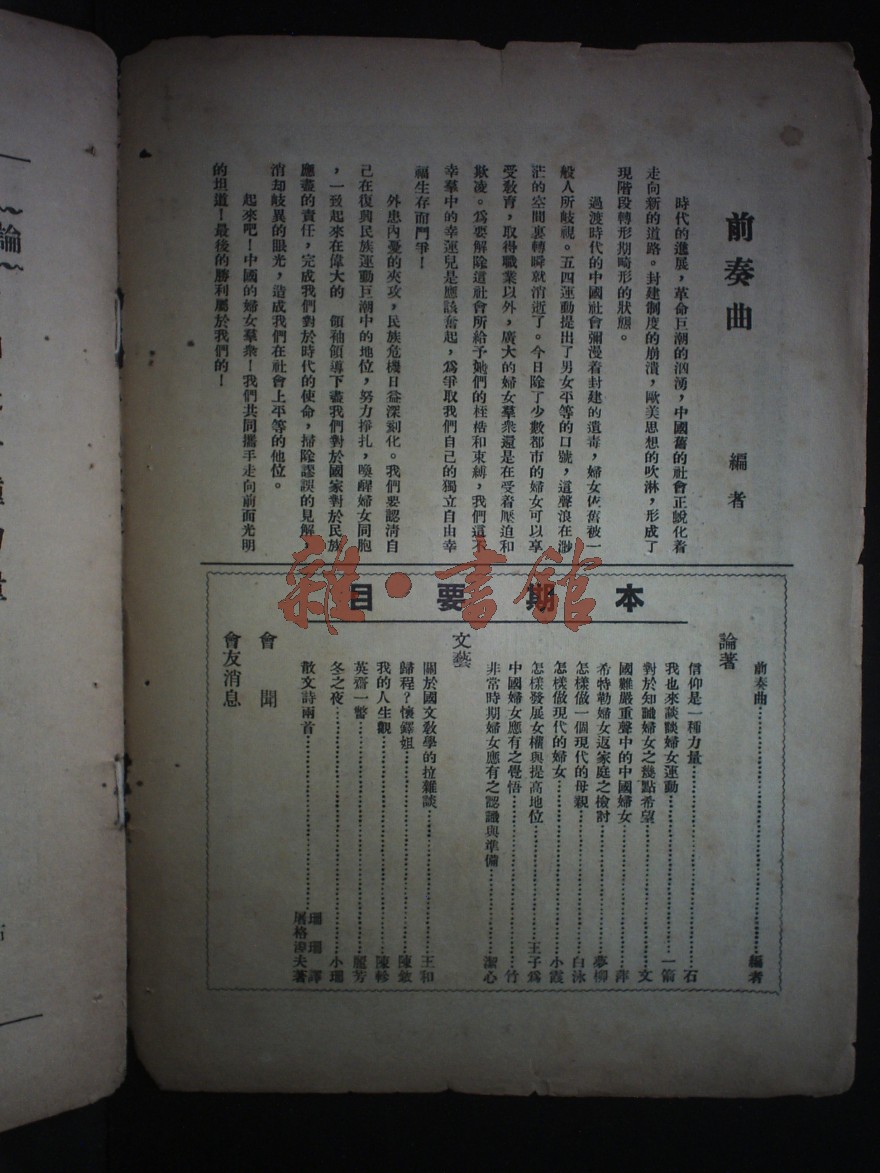 前奏曲
編者
時代的進展，革命巨潮的汹湧，中國舊的社會正蛻化着
走向新的道路。封建制度的崩潰，歐美思想的吹淋，形成了
現階段轉形期畸形的狀態。
過渡時代的中國社會彌漫着封建的遺毒，婦女依舊被一
般人所歧視。五四運動提出了男女平等的口號，這聲浪在渺
茫的空間裏轉瞬就消逝了。今日除了少數都市的婦女可以享
受敎育，取得職業以外，廣大的婦女羣衆還是在受着壓迫和
欺凌。爲要解除這社會所給予她們的桎梏和束縛，我們這不
幸羣中的幸運兒是應該奮起，爲爭取我們自己的獨立自由幸
福生存而鬥爭！
外患內憂的夾攻，民族危機日益深刻化。我們要認清自
己在復興民族運動巨潮中的地位，努力掙扎，喚醒婦女同胞
，一致起來在偉大的 領袖領導下盡我們對於國家對於民族
應盡的責任，完成我們對於時代的使命，掃除謬誤的見解，
消却歧異的眼光，造成我們在社會上平等的他位。
起來吧！中國的婦女羣衆！我們共同攜手走向前面光明
的坦道！最後的勝利屬於我們的！
本期要目
前奏曲……編者
論著
信仰是一種力量……石
我也來談談婦女運動……一箭
對於知識婦女之幾點希望……文
國難嚴重聲中的中國婦女……萍
希特勒婦女返家庭之檢討……夢柳
怎樣做一個現代的母親……白泳
怎樣做現代的婦女……小霞
怎樣發展女權與提高地位……王子爲
中國婦女應有之覺悟……竹
非常時期婦女應有之認識與準備……潔心
文藝
關於國文敎學的拉雜談……王和
歸程？懷鐸姐……陳敘
我的人生觀……陳軫
英齋一瞥……麗芳
冬之夜……小珊
散文詩兩首……屠格涅夫著 珊珊譯
會聞
會友消息
雜·書館
論